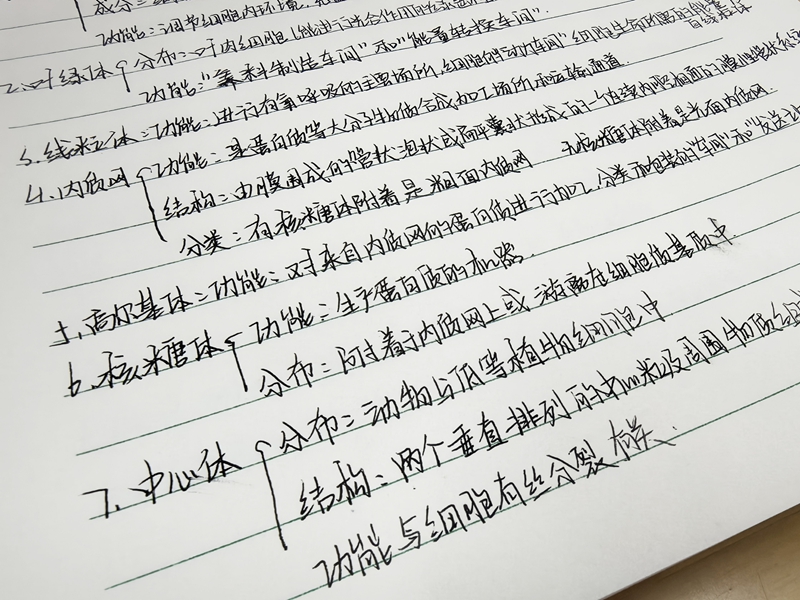 成分：
功能：调节细胞内环境，
2.叶绿体 分布：叶肉细胞（能进行光合作用
功能："养料制造车间"和"能量转换车间"
3.线粒体：功能：进行有氧呼吸的主要场所，细胞的"动力车间" 细胞生命所需的能量
4.内质网 功能：是蛋白质等大分子物质合成，加工场所和运输通道。
结构：由膜围成的管状、泡状或扁平囊状形成的一个连续内腔相通的膜性管道
分类：有核糖体附着是粗面内质网 无核糖体附着是光面内质网
5.高尔基体：功能：对来自内质网的蛋白质进行加工，分类和包装的"车间"和"发送
6.核糖体 功能：生产蛋白质的机器
分布：附着于内质网上或游离在细胞质基质中
7.中心体 分布：动物与低等植物细胞中
结构：两个垂直排列的中心粒及周围物质组
功能与细胞有丝分裂